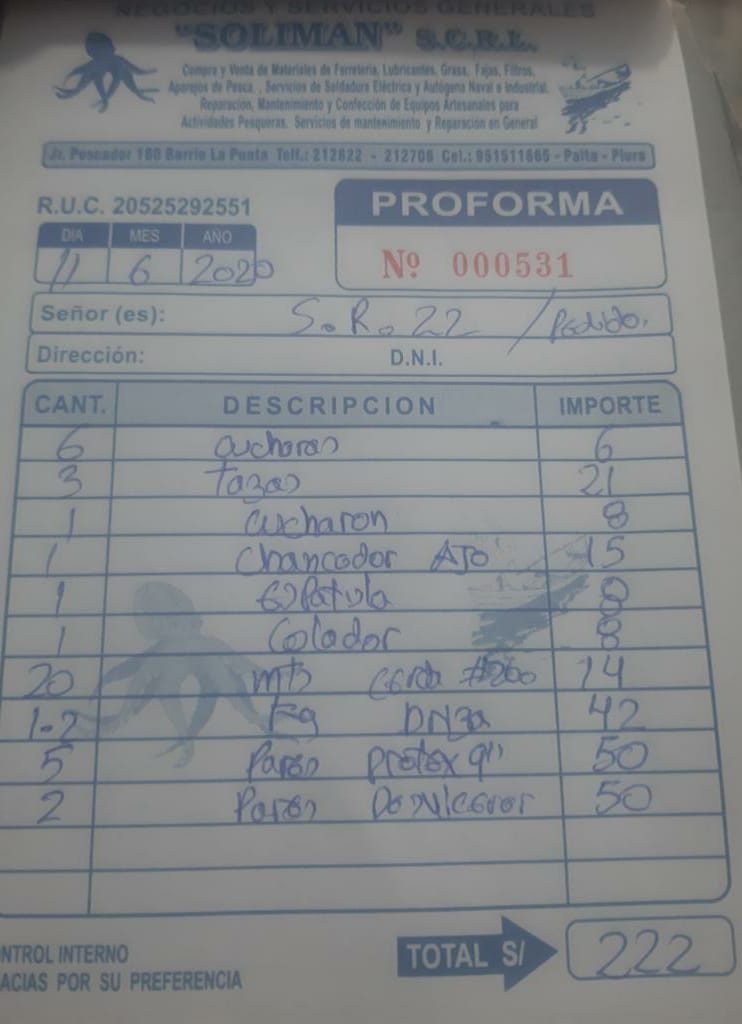 NEGOCIOS Y SERVICIOS GENERALES
"SOLIMAN" S.C.R.L.
Compra y Venta de Materiales de Ferreteria, Lubricantes, Grasa, Fajas, Filtros,
Aparejos de Pesca, Servicios de Soldadura Eléctrica y Autógena Naval e Industrial.
Reparación, Mantenimiento y Confección de Equipos Artesanales para
Actividades Pesqueras. Servicios de mantenimiento y Reparación en General
Jr. Pescador 160 Barrio La Punta Telf.: 212622 - 212706 Cel.: 951511665 - Paita - Piura
R.U.C. 20525292551
PROFORMA
DIA MES AÑO
11 6 2020
Nº 000531
Señor (es): S.R. 22 / Pedido.
Dirección: D.N.I.
CANT. DESCRIPCION IMPORTE
6 cucharas 6
3 tazas 21
1 cucharon 8
1 Chancador AJO 15
1 Espatula 8
1 Colador 8
20 mts #200 14
1-2 Kg 42
5 Pares 9" 50
2 Pares 50
ONTROL INTERNO
ACIAS POR SU PREFERENCIA
TOTAL S/ 222